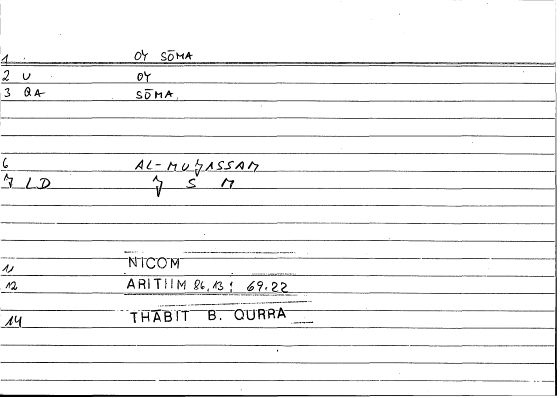 1 OY SŌMA
2 U OY
3 QA SŌMA
6 AL-MUJASSAM
7 LD J S M
11 NICOM
12 ARITIIM 86,13 : 69.22
14 THABIT B. QURRA